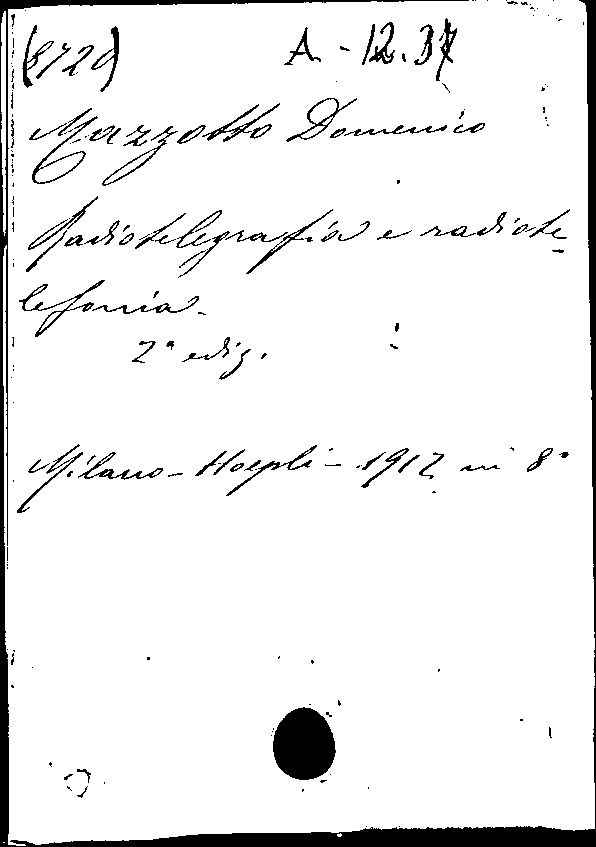 (8720) A - 12.37
Mazzotto Domenico
Radiotelegrafia e radiote=
lefonia.
2ª ediz.
Milano - Hoepli - 1912 in 8°